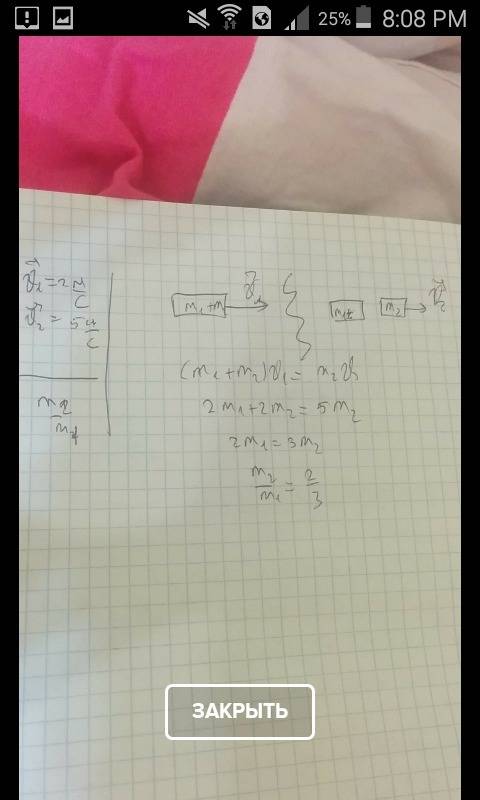 25% 8:08 PM
v₁ = 2 м/с
v₂ = 5 м/с
m₂/m₁
m₁ + m v₁
m₁ m₂ v₂
(m₁ + m₂) v₁ = m₂ v
2 m₁ + 2 m₂ = 5 m₂
2 m₁ = 3 m₂
m₂/m₁ = 2/3
ЗАКРЫТЬ